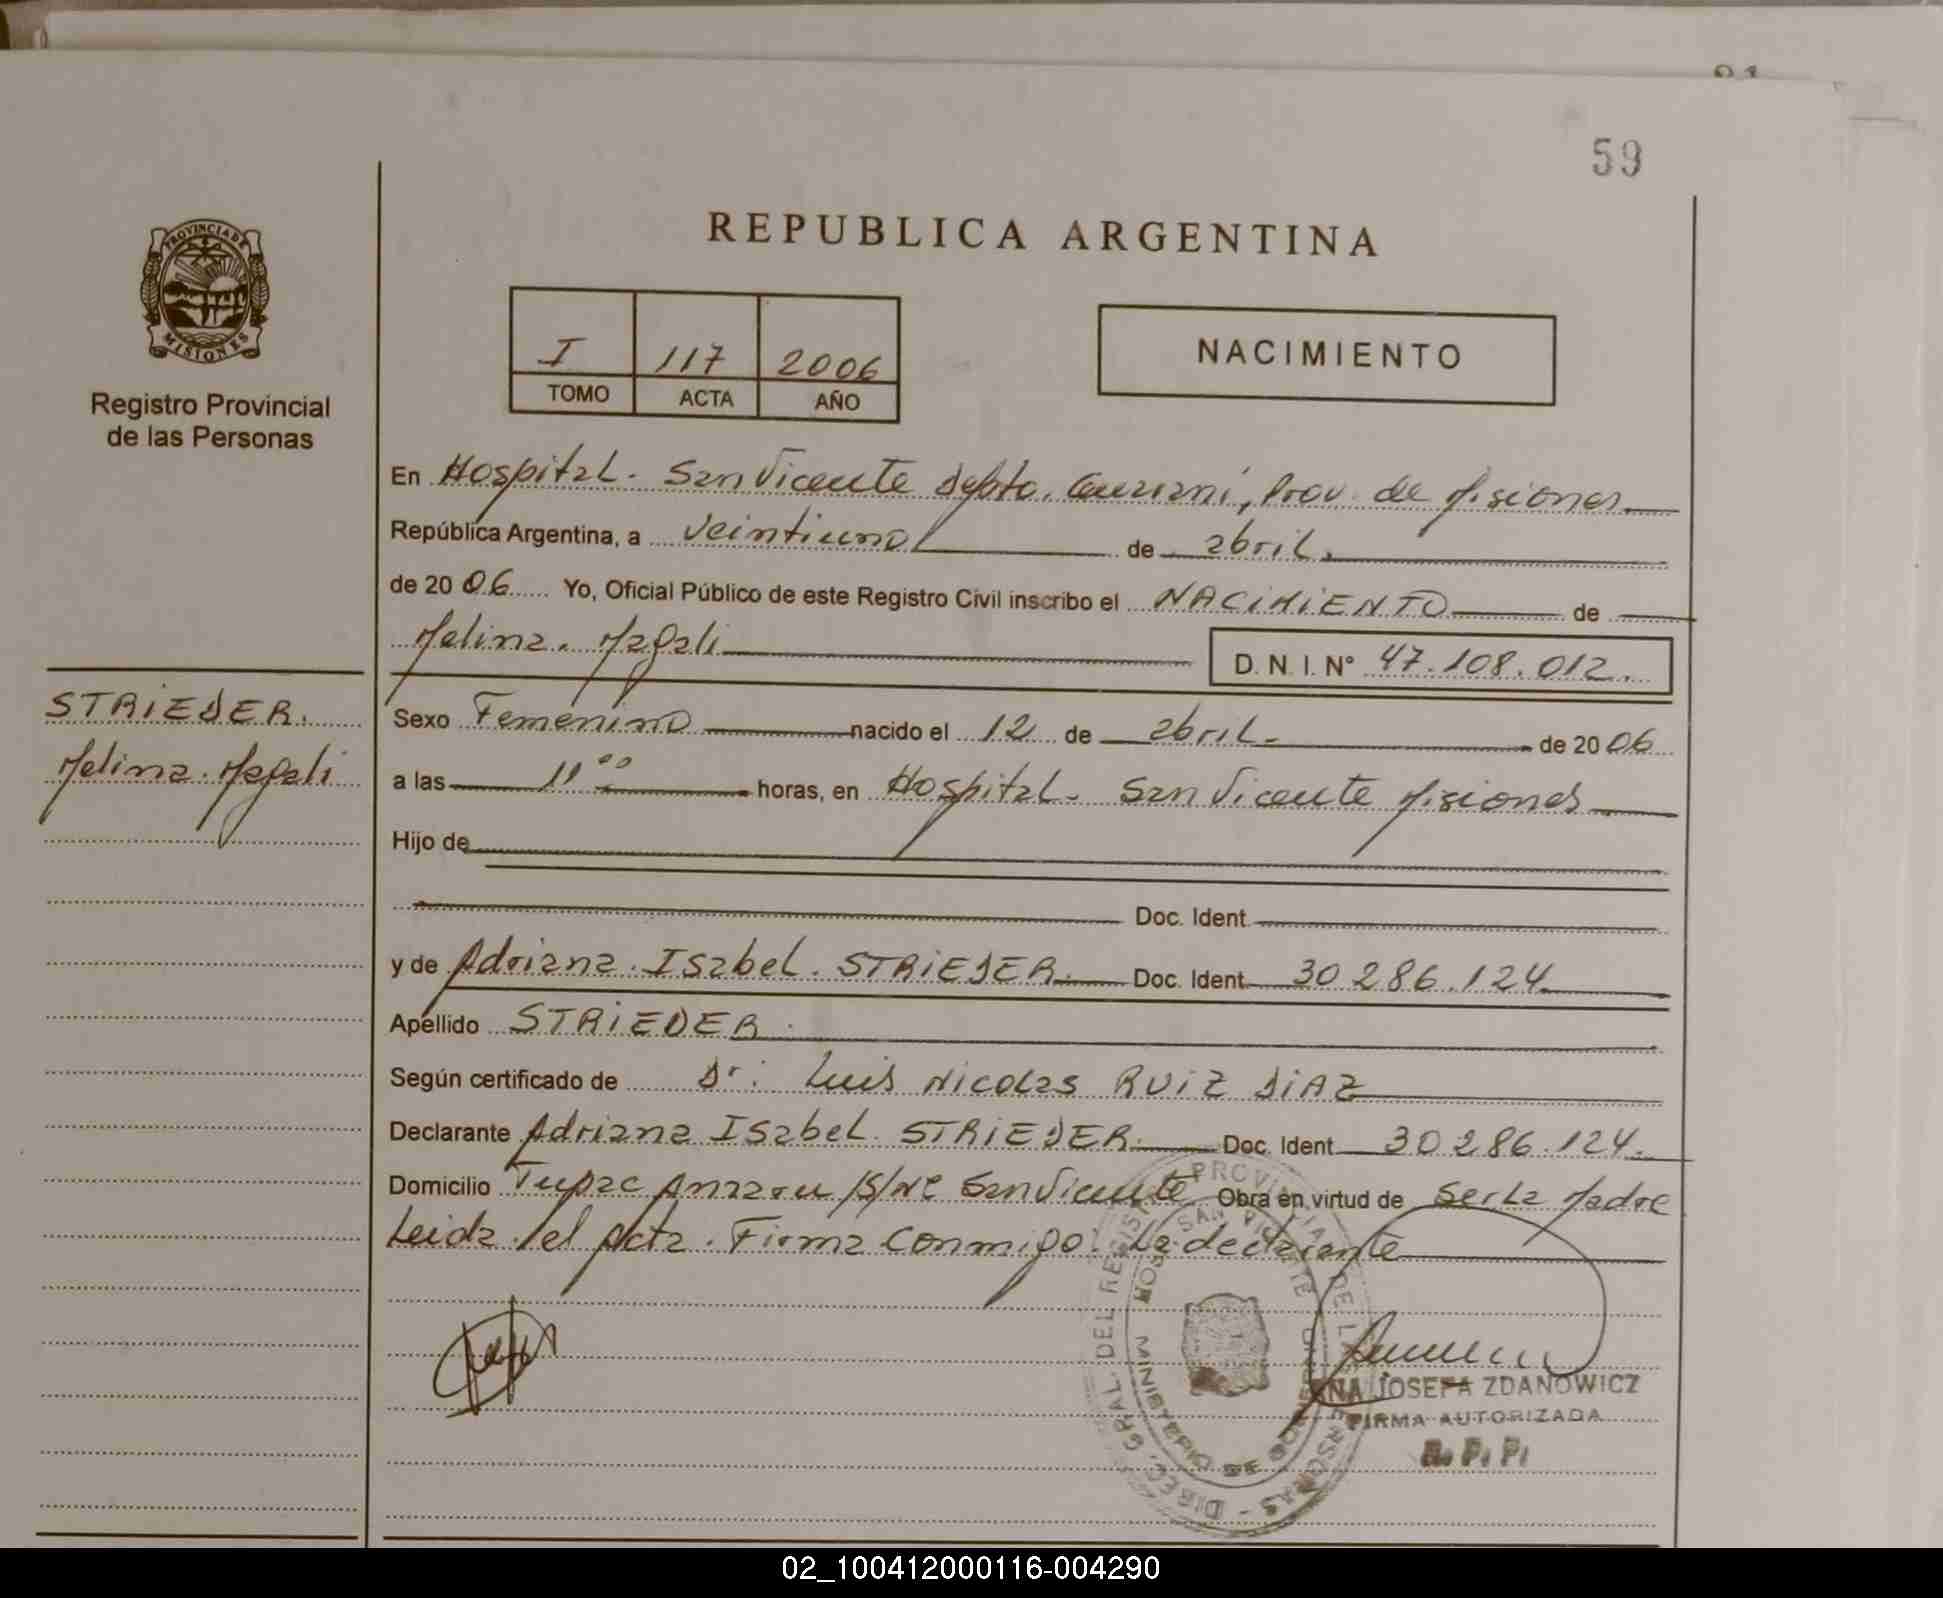 59
REPUBLICA ARGENTINA
PROVINCIA DE
MISIONES
Registro Provincial
de las Personas
I 117 2006
TOMO ACTA AÑO
NACIMIENTO
En Hospital. San Vicente depto. Guarani, Prov. de Misiones
República Argentina, a veintiuno de abril.
de 2006 Yo, Oficial Público de este Registro Civil inscribo el NACIMIENTO de
Melina. Magali
D. N. I. N° 47.108.012.
STRIEDER.
Melina. Magali
Sexo Femenino nacido el 12 de abril. de 2006
a las 11 00 horas, en Hospital. San Vicente Misiones
Hijo de
Doc. Ident.
y de Adriana. Isabel. STRIEDER. Doc. Ident. 30286.124
Apellido STRIEDER.
Según certificado de Dr. Luis Nicolas RUIZ DIAZ
Declarante Adriana Isabel. STRIEDER. Doc. Ident. 30286.124.
Domicilio Tupac Amaru S/Nº San Vicente Obra en virtud de Ser La Madre
Leida el Acta. Firma Conmigo. La declarante
DIREC. GRAL. DEL REGIST. PROVINCIAL DE LAS PERSONAS
HOSP. SAN VICENTE
MINISTERIO DE GOBIERNO
JOSEFA ZDANOWICZ
FIRMA AUTORIZADA
R. P. P.
02_100412000116-004290